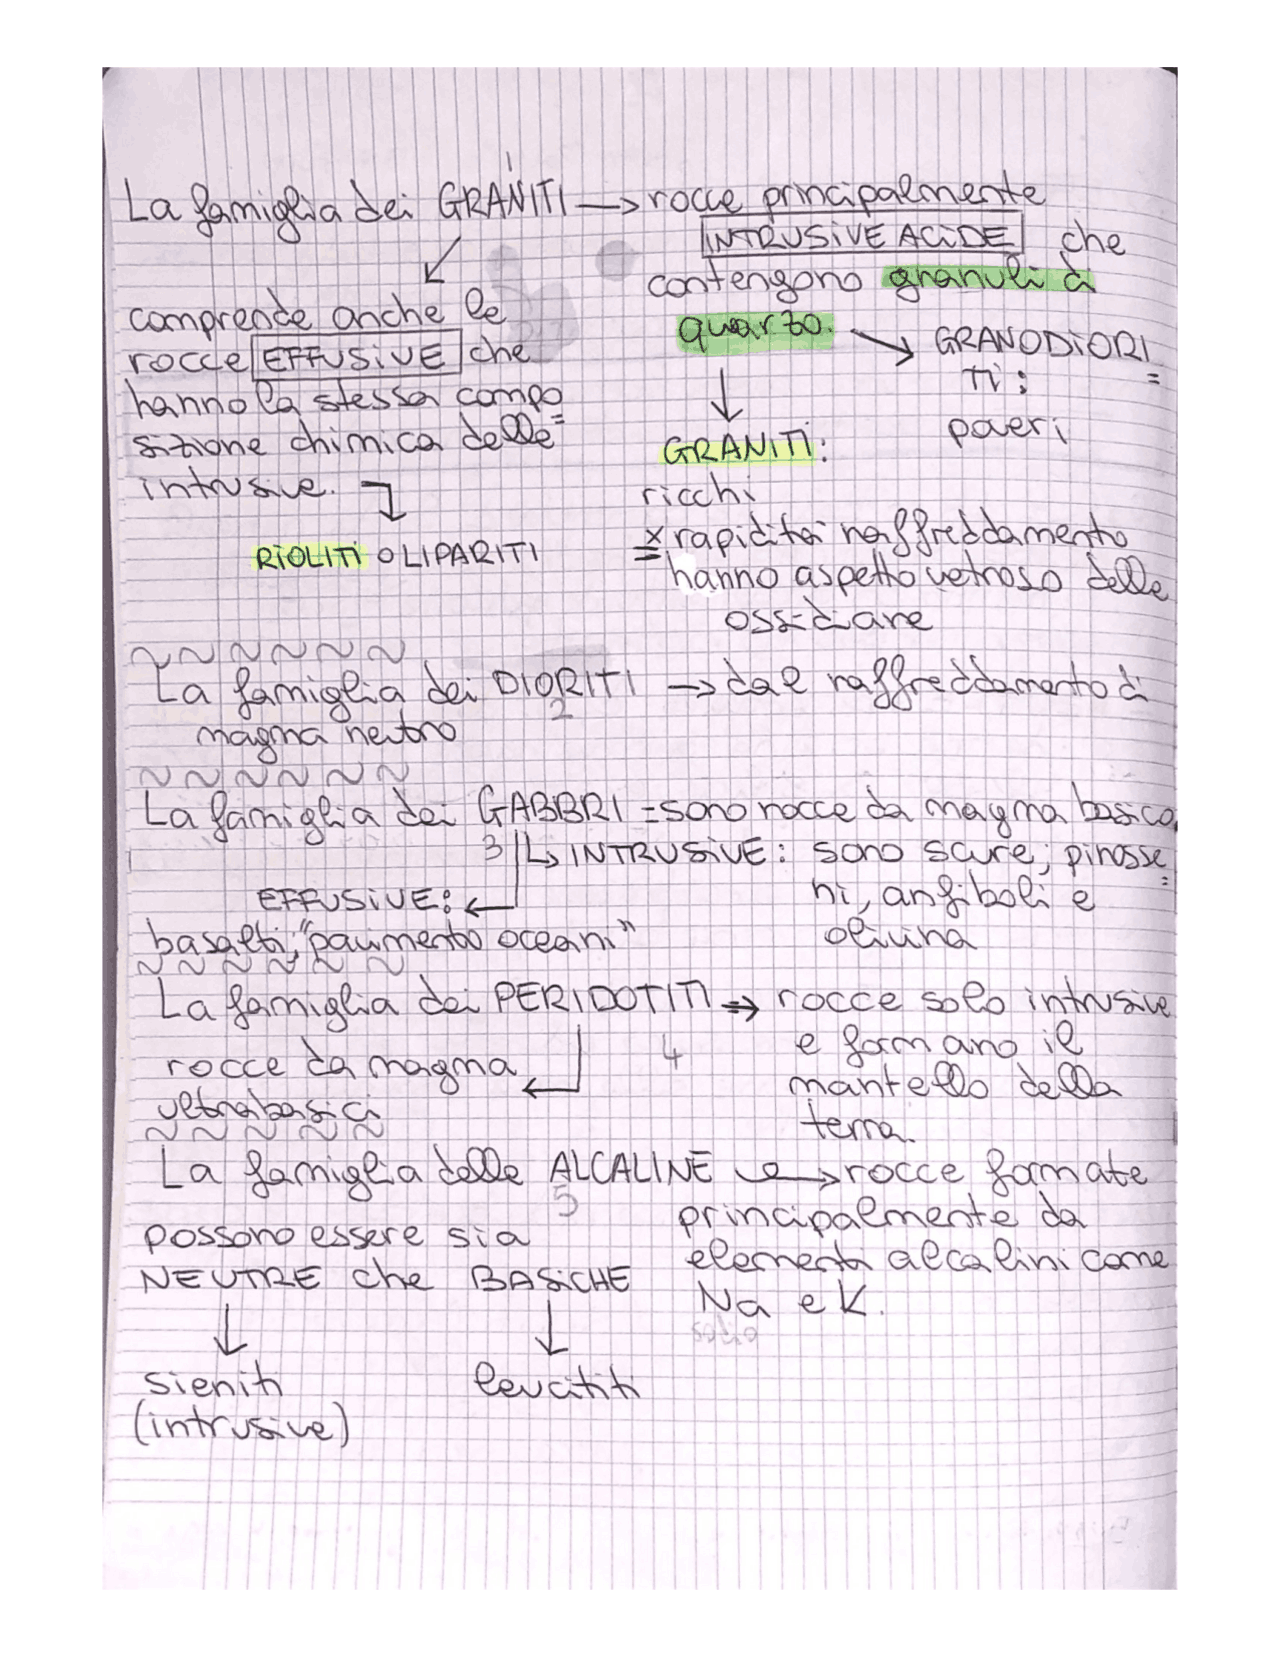 1
La famiglia dei GRANITI → rocce principalmente
INTRUSIVE ACIDE che
contengono granuli di
quarzo.
GRANODIORI=
TI:
poveri
GRANITI:
ricchi
comprende anche le
rocce EFFUSIVE che
hanno la stessa compo=
sizione chimica delle
intrusive.
RIOLITI O LIPARITI
= x rapidità raffreddamento
hanno aspetto vetroso delle
ossidiane
La famiglia dei DIORITI → dal raffreddamento di
2
magma neutro
La famiglia dei GABBRI = sono rocce da magma basico
3
INTRUSIVE: sono scure; pirosse=
ni, anfiboli e
olivina
EFFUSIVE:
basalti, "pavimento oceani"
La famiglia dei PERIDOTITI → rocce solo intrusive
4
e formano il
mantello della
terra.
rocce da magma
ultrabasici
La famiglia delle ALCALINE → rocce formate
5
principalmente da
elementi alcalini come
Na e K.
possono essere sia
NEUTRE che BASICHE
sieniti
(intrusive)
leucititi